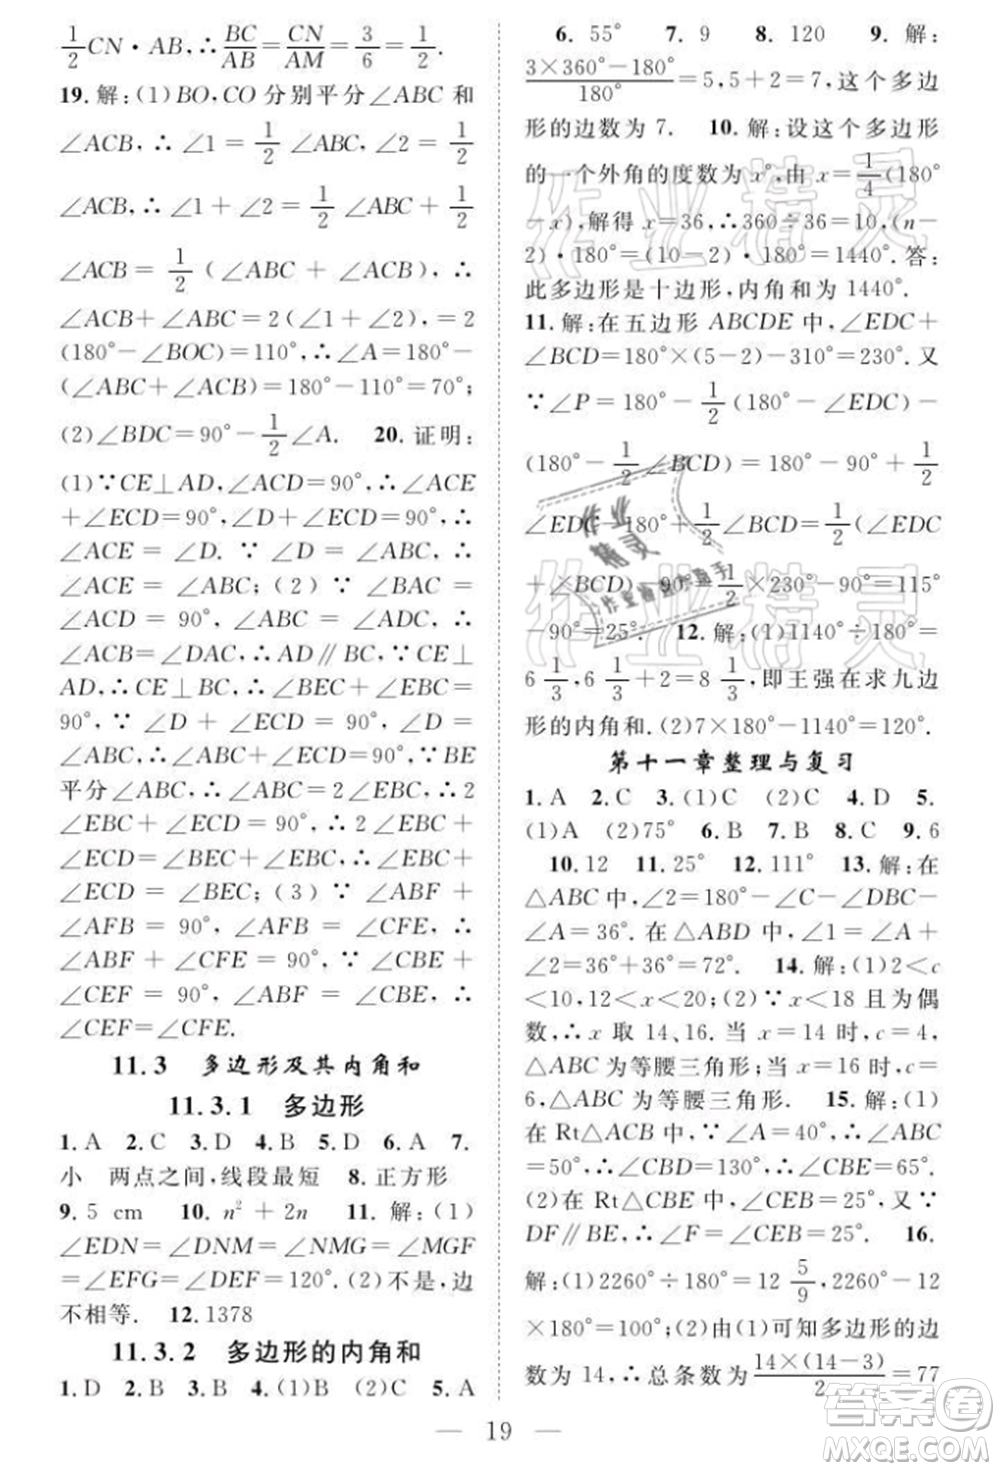 1/2 CN·AB,∴BC/AB=CN/AM=3/6=1/2.
19.解:(1)BO,CO 分别平分∠ABC 和
∠ACB,∴∠1=1/2∠ABC,∠2=1/2
∠ACB,∴∠1+∠2=1/2∠ABC+1/2
∠ACB=1/2(∠ABC+∠ACB),∴
∠ACB+∠ABC=2(∠1+∠2),=2
(180°-∠BOC)=110°,∴∠A=180°-
(∠ABC+∠ACB)=180°-110°=70°;
(2)∠BDC=90°-1/2∠A. 20.证明:
(1)∵CE⊥AD,∠ACD=90°,∴∠ACE
+∠ECD=90°,∠D+∠ECD=90°,∴
∠ACE=∠D. ∵∠D=∠ABC,∴
∠ACE=∠ABC;(2)∵∠BAC=
∠D,∠D=∠DAC,∴∠BAC=
∠DAC,∴AD∥BC,∵CE⊥
AD,∴CE⊥BC,∴∠BEC+∠EBC=
90°,∵∠D+∠ECD=90°,∴
∠ABC+∠ECD=90°,∵BE
平分∠ABC,∴∠ABC=2∠EBC,∴2
∠EBC+∠ECD=90°,∴2
∠EBC+∠ECD=∠BEC+∠EBC,∴
∠ECD=∠BEC;(3)∵∠ABF+
∠AFB=90°,∠AFB=∠CFE,∴
∠ABF+∠CFE=90°,∵∠CBE+
∠CEF=90°,∠ABF=∠CBE,∴
∠CEF=∠CFE.
11.3 多边形及其内角和
11.3.1 多边形
1.A 2.C 3.D 4.B 5.D 6.A 7.
小 两点之间,线段最短 8.正方形
9.5 cm 10.n²+2n 11.解:(1)
∠EDN=∠DNM=∠NMG=∠MGF
=∠EFG=∠DEF=120°.(2)不是,边
不相等. 12.1378
11.3.2 多边形的内角和
1.D 2.A 3.B 4.(1)B (2)C 5.A
6.55° 7.9 8.120 9.解:
(3×360°-180°)/180°=5,5+2=7,这个多边
形的边数为 7. 10.解:设这个多边形
的一个外角的度数为 x°,由 x=1/4(180°
-x),解得 x=36,∴360÷36=10,(n-
2)·180°=(10-2)·180°=1440°.答:
此多边形是十边形,内角和为 1440°.
11.解:在五边形 ABCDE 中,∠EDC+
∠BCD=180°×(5-2)-310°=230°.又
∵∠P=180°-1/2(180°-∠EDC)-
(180°-1/2∠BCD)=180°-90°+1/2
∠EDC-180°+1/2∠BCD=1/2(∠EDC
+∠BCD)-90°=1/2×230°-90°=115°
-90°=25°. 12.解:(1)1140°÷180°=
6 1/3,6 1/3+2=8 1/3,即王强在求九边
形的内角和.(2)7×180°-1140°=120°.
第十一章整理与复习
1.A 2.C 3.(1)C (2)C 4.D 5.
(1)A (2)75° 6.B 7.B 8.C 9.6
10.12 11.25° 12.111° 13.解:在
△ABC 中,∠2=180°-∠ABC-∠C-
∠A=36°.在△ABD 中,∠1=∠A+
∠2=36°+36°=72°. 14.解:(1)2<c
<10,10<x<18;(2)∵x<18 且为偶
数,∴x 取 14、16.当 x=14 时,c=4,
△ABC 为等腰三角形;当 x=16 时,c=
6,△ABC 为等腰三角形. 15.解:(1)
在 Rt△ACB 中,∵∠A=40°,∴∠ABC
=50°,∴∠CBD=130°,∴∠CBE=65°.
(2)在 Rt△CBE 中,∠CEB=25°,又∵
DF∥BE,∴∠F=∠CEB=25°. 16.
解:(1)2260°÷180°=12 5/9,2260°-12
×180°=100°;(2)由(1)可知多边形的边
数为 14,∴总条数为 14×(14-3)/2=77
19
作业精灵
答案圈
MXQE.COM